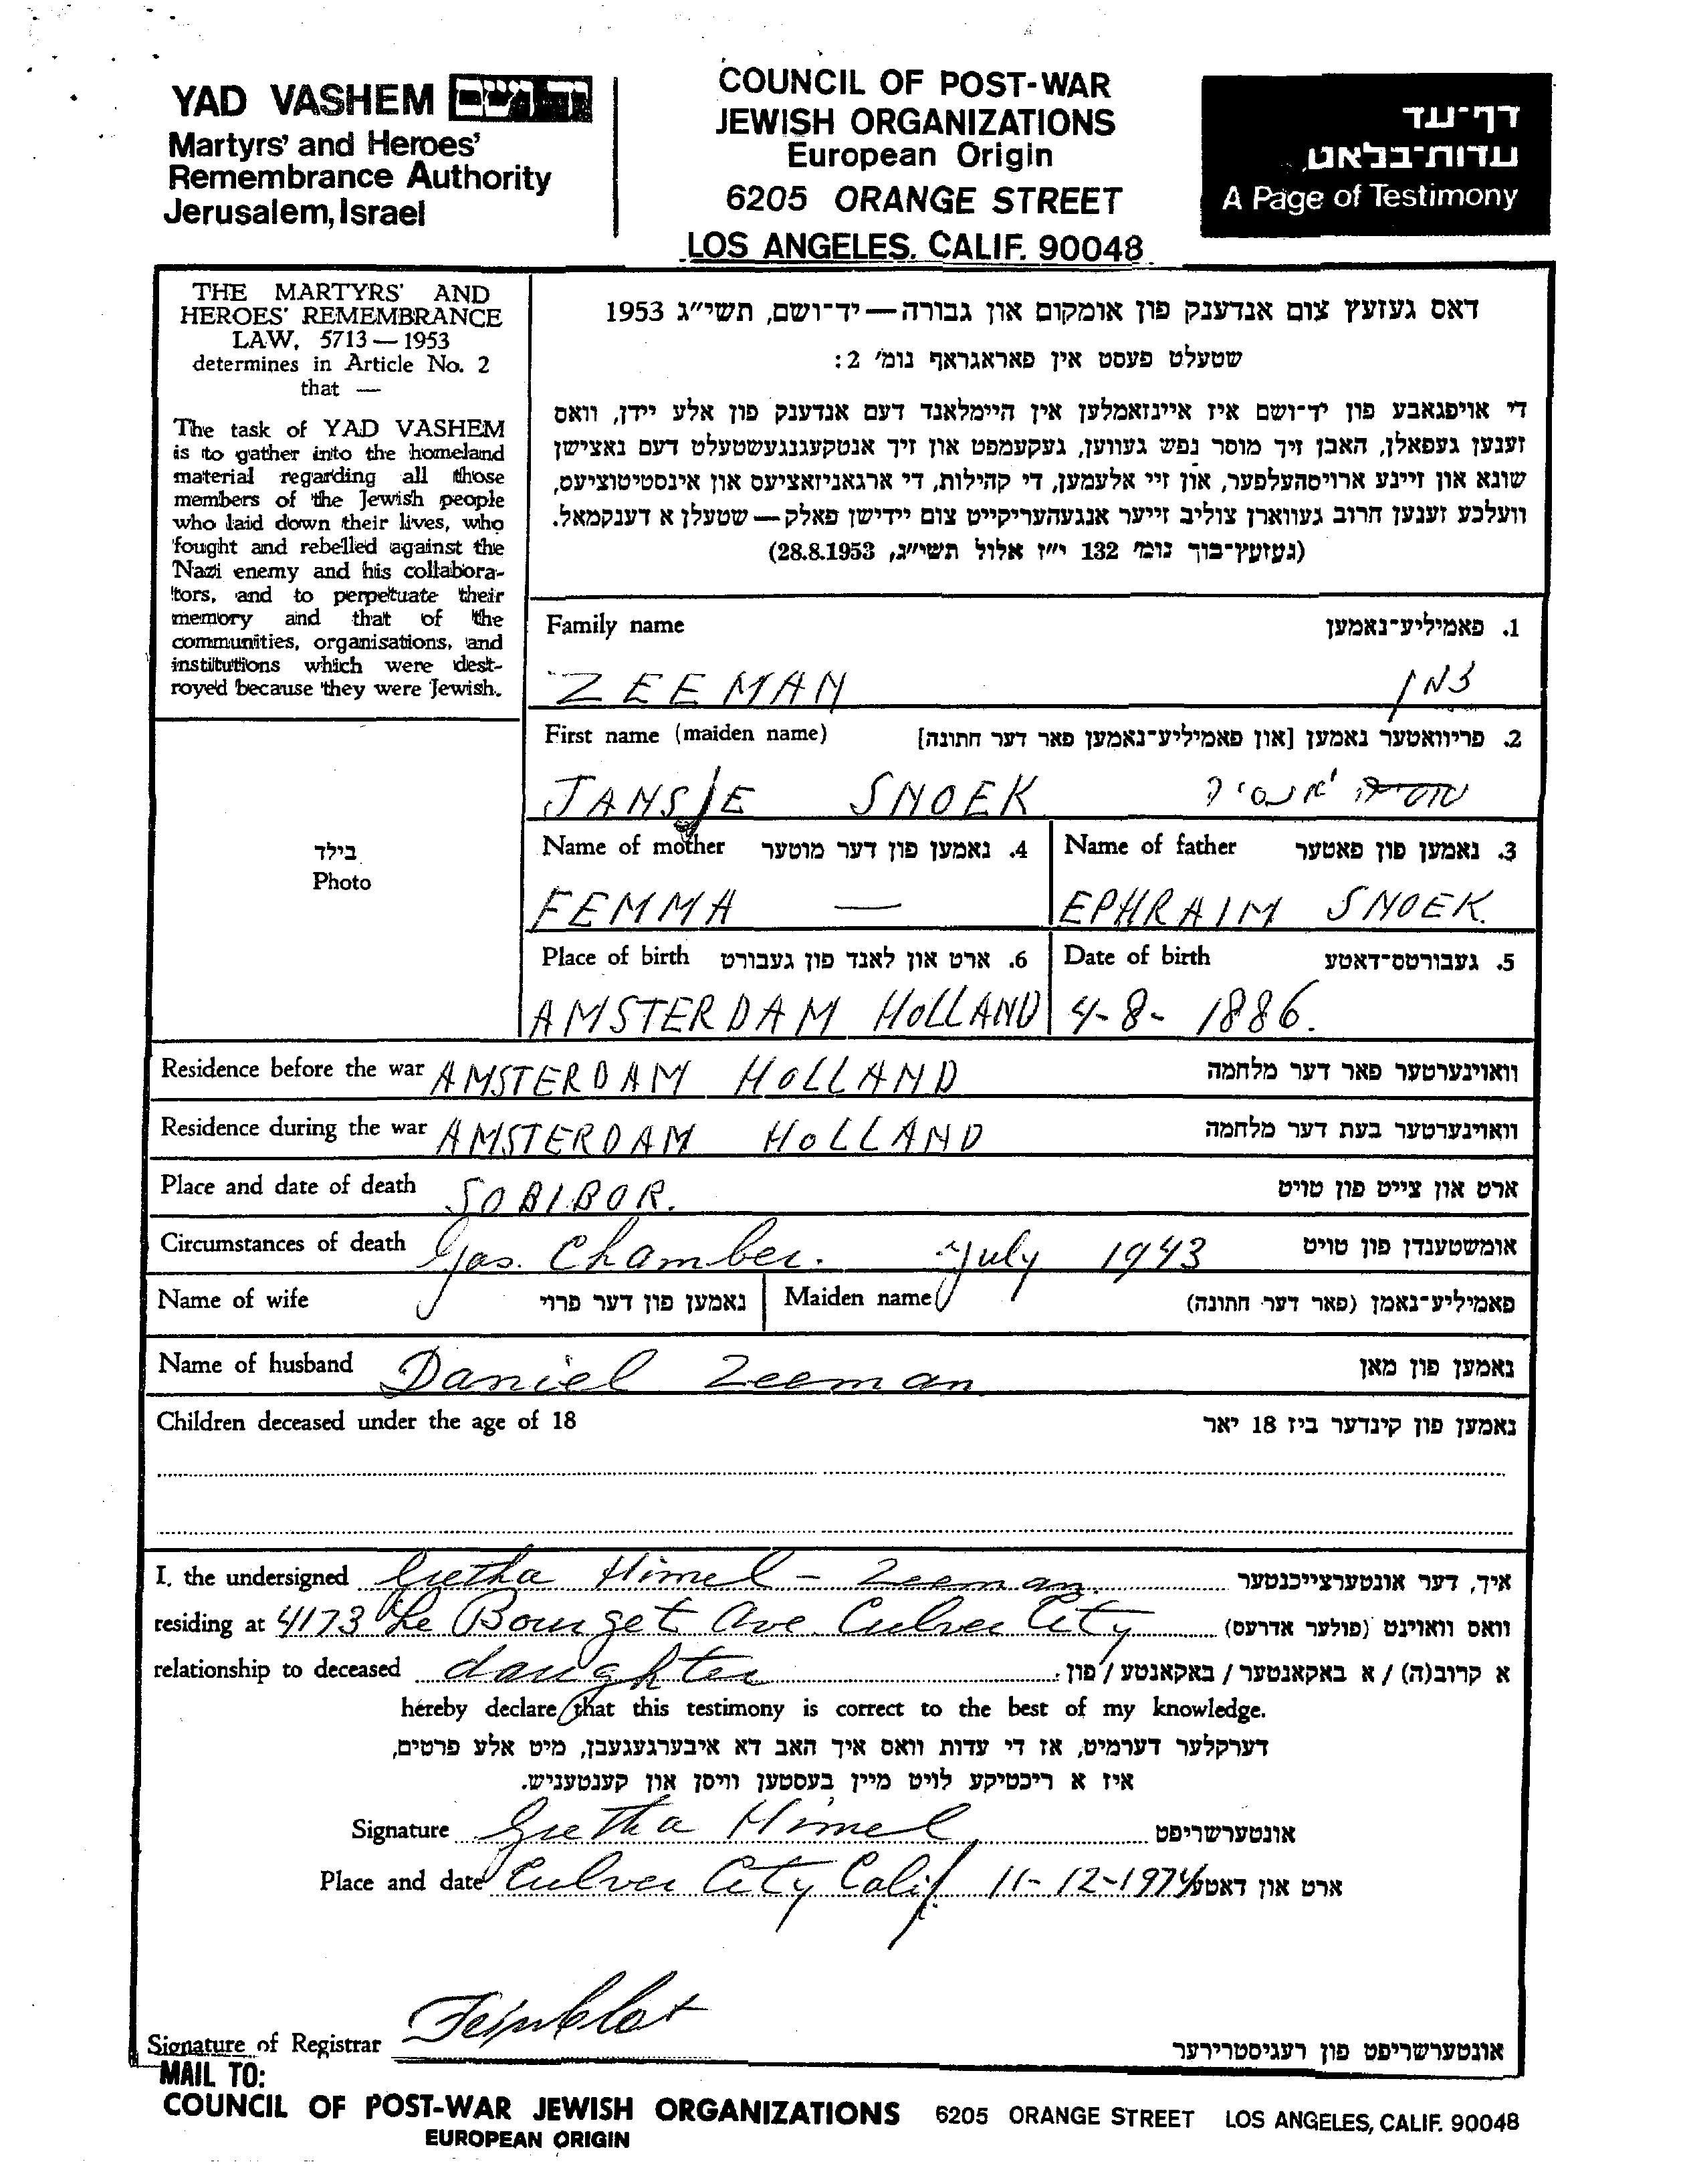 YAD VASHEM יד ושם
Martyrs' and Heroes'
Remembrance Authority
Jerusalem, Israel
COUNCIL OF POST-WAR
JEWISH ORGANIZATIONS
European Origin
6205 ORANGE STREET
LOS ANGELES, CALIF. 90048
דף־עד
עדות־בלאט
A Page of Testimony
THE MARTYRS' AND
HEROES' REMEMBRANCE
LAW, 5713—1953
determines in Article No. 2
that —
The task of YAD VASHEM
is to gather into the homeland
material regarding all those
members of the Jewish people
who laid down their lives, who
fought and rebelled against the
Nazi enemy and his collabora-
tors, and to perpetuate their
memory and that of the
communities, organisations, and
institutions which were dest-
royed because they were Jewish.
דאס געזעץ צום אנדענק פון אומקום און גבורה—יד־ושם, תשי״ג 1953
שטעלט פעסט אין פאראגראף נומ׳ 2:
די אויפגאבע פון יד־ושם איז איינזאמלען אין היימלאנד דעם אנדענק פון אלע יידן, וואס
זענען געפאלן, האבן זיך מוסר נפש געווען, געקעמפט און זיך אנטקעגנגעשטעלט דעם נאצישן
שונא און זיינע ארויסהעלפער, און זיי אלעמען, די קהילות, די ארגאניזאציעס און אינסטיטוציעס,
וועלכע זענען חרוב געווארן צוליב זייער אנגעהעריקייט צום יידישן פאלק—שטעלן א דענקמאל.
(געזעץ־בוך נומ׳ 132 י״ז אלול תשי״ג, 28.8.1953)
Family name 1. פאמיליע־נאמען
ZEEMAN צמן
First name (maiden name) 2. פריוואטער נאמען [און פאמיליע־נאמען פאר דער חתונה]
JANSJE SNOEK
בילד
Photo
Name of mother 4. נאמען פון דער מוטער Name of father 3. נאמען פון פאטער
FEMMA — EPHRAIM SNOEK.
Place of birth 6. ארט און לאנד פון געבורט Date of birth 5. געבורטס־דאטע
AMSTERDAM HOLLAND 4-8-1886.
Residence before the war AMSTERDAM HOLLAND וואוינערטער פאר דער מלחמה
Residence during the war AMSTERDAM HOLLAND וואוינערטער בעת דער מלחמה
Place and date of death SOBIBOR. ארט און צייט פון טויט
Circumstances of death Gas. Chamber. July 1943 אומשטענדן פון טויט
Name of wife נאמען פון דער פרוי Maiden name פאמיליע־נאמן (פאר דער חתונה)
Name of husband Daniel Zeeman נאמען פון מאן
Children deceased under the age of 18 נאמען פון קינדער ביז 18 יאר
I, the undersigned Gretha Himel - Zeeman. איך, דער אונטערצייכנטער
residing at 4173 Le Bourget Ave. Culver City וואס וואוינט (פולער אדרעס)
relationship to deceased daughter א קרוב(ה) / א באקאנטער / באקאנטע / פון:
hereby declare that this testimony is correct to the best of my knowledge.
דערקלער דערמיט, אז די עדות וואס איך האב דא איבערגעגעבן, מיט אלע פרטים,
איז א ריכטיקע לויט מיין בעסטען וויסן און קענטעניש.
Signature Gretha Himel אונטערשריפט
Place and date Culver City Calif. 11-12-1974 ארט און דאטע
Signature of Registrar Feinblat אונטערשריפט פון רעגיסטרירער
MAIL TO:
COUNCIL OF POST-WAR JEWISH ORGANIZATIONS 6205 ORANGE STREET LOS ANGELES, CALIF. 90048
EUROPEAN ORIGIN